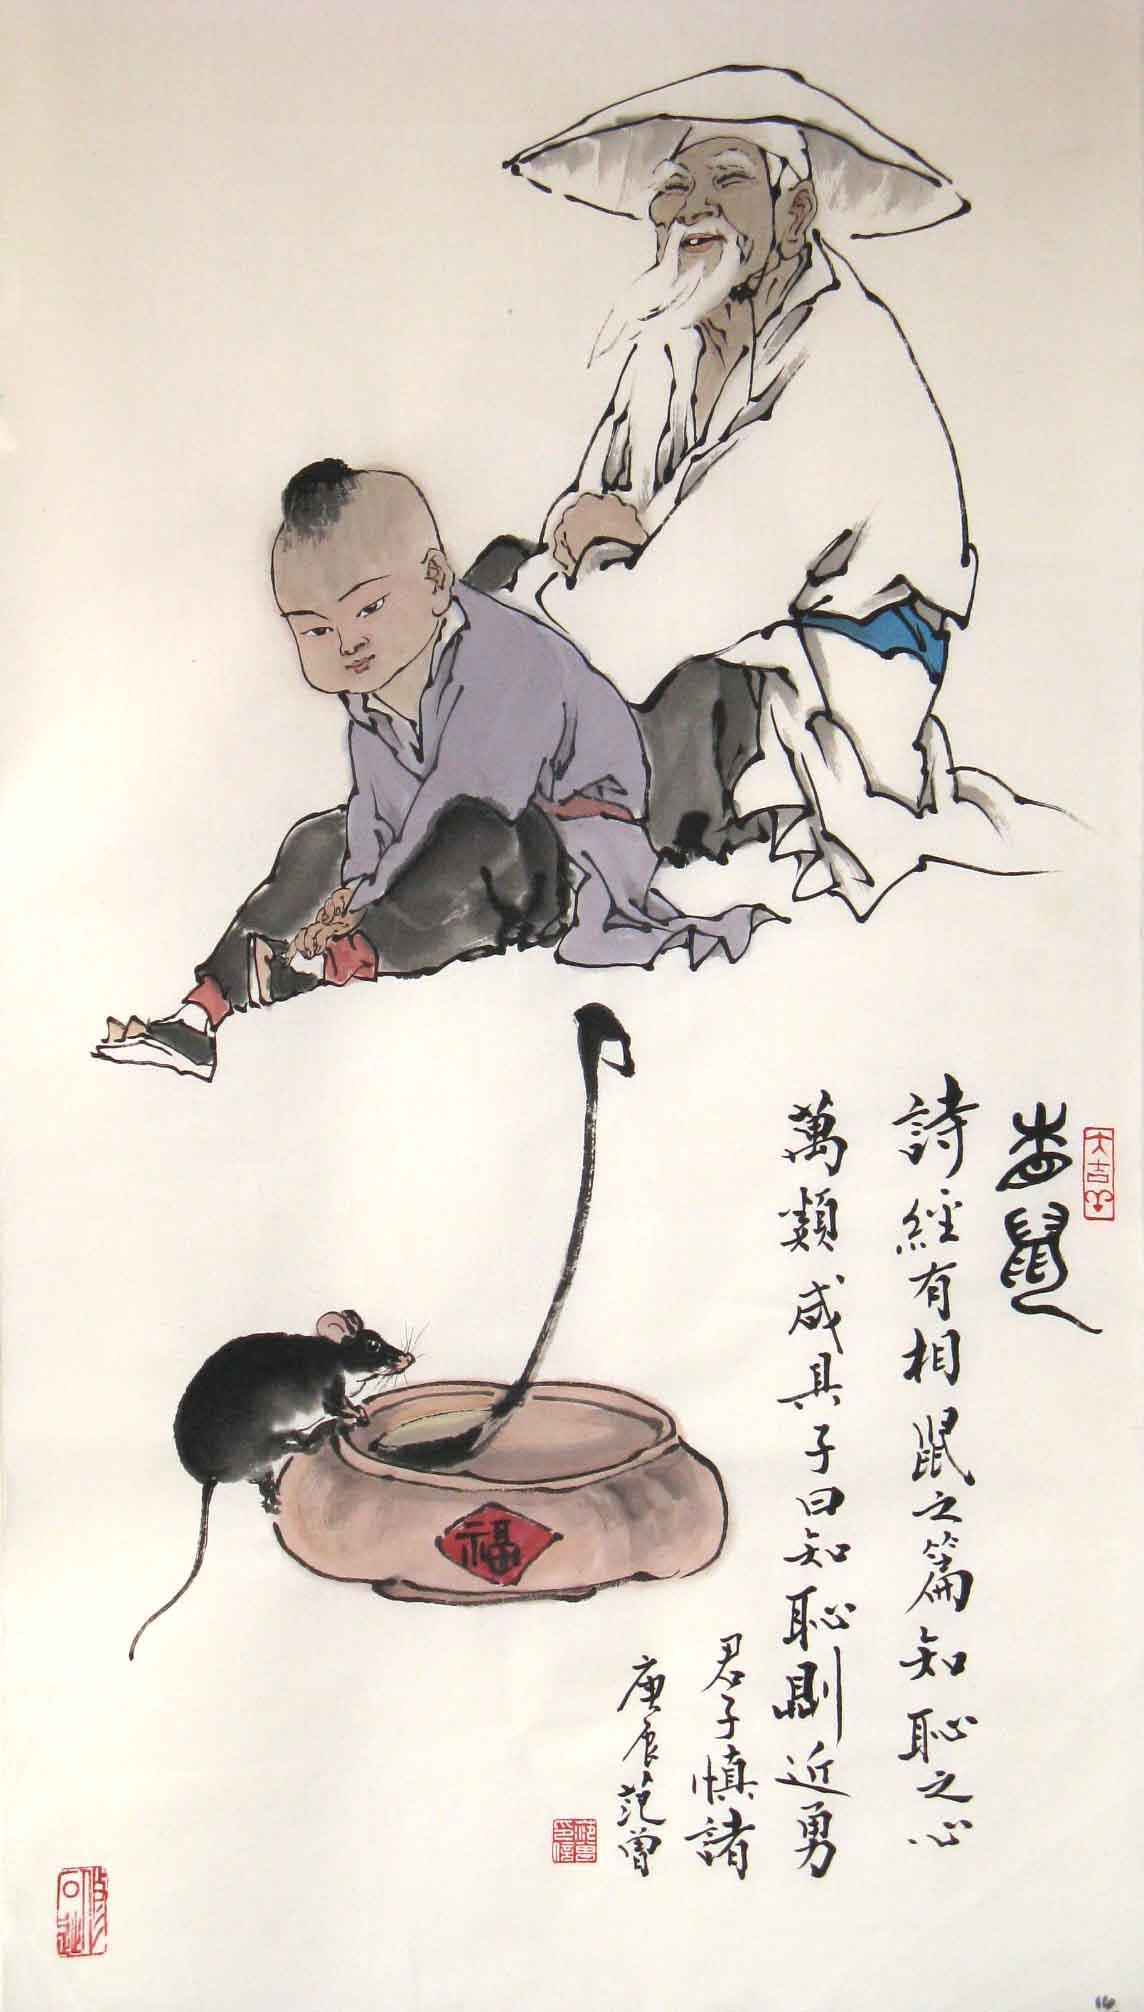 大吉
鼠
詩經有相鼠之篇知恥之心
萬類咸具子曰知恥則近勇
君子慎諸
庚辰范曾
福